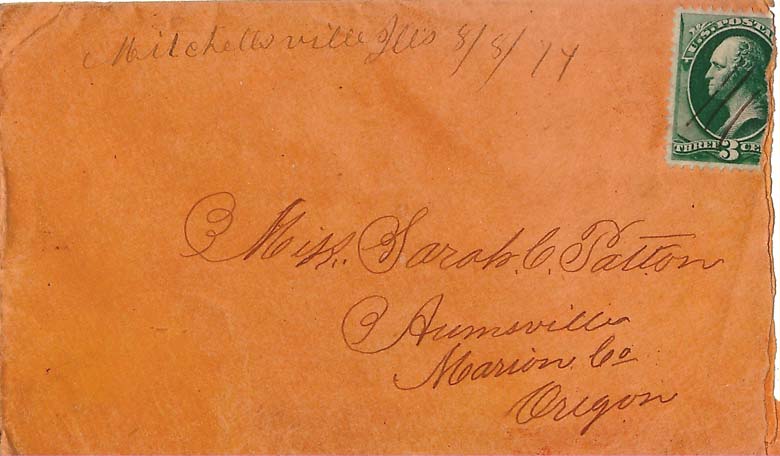 Mitchellsville Ills 8/8/74
U.S. POSTA
THREE 3 CE
Miss. Sarah. C. Patton
Aumsville
Marion Co
Oregon